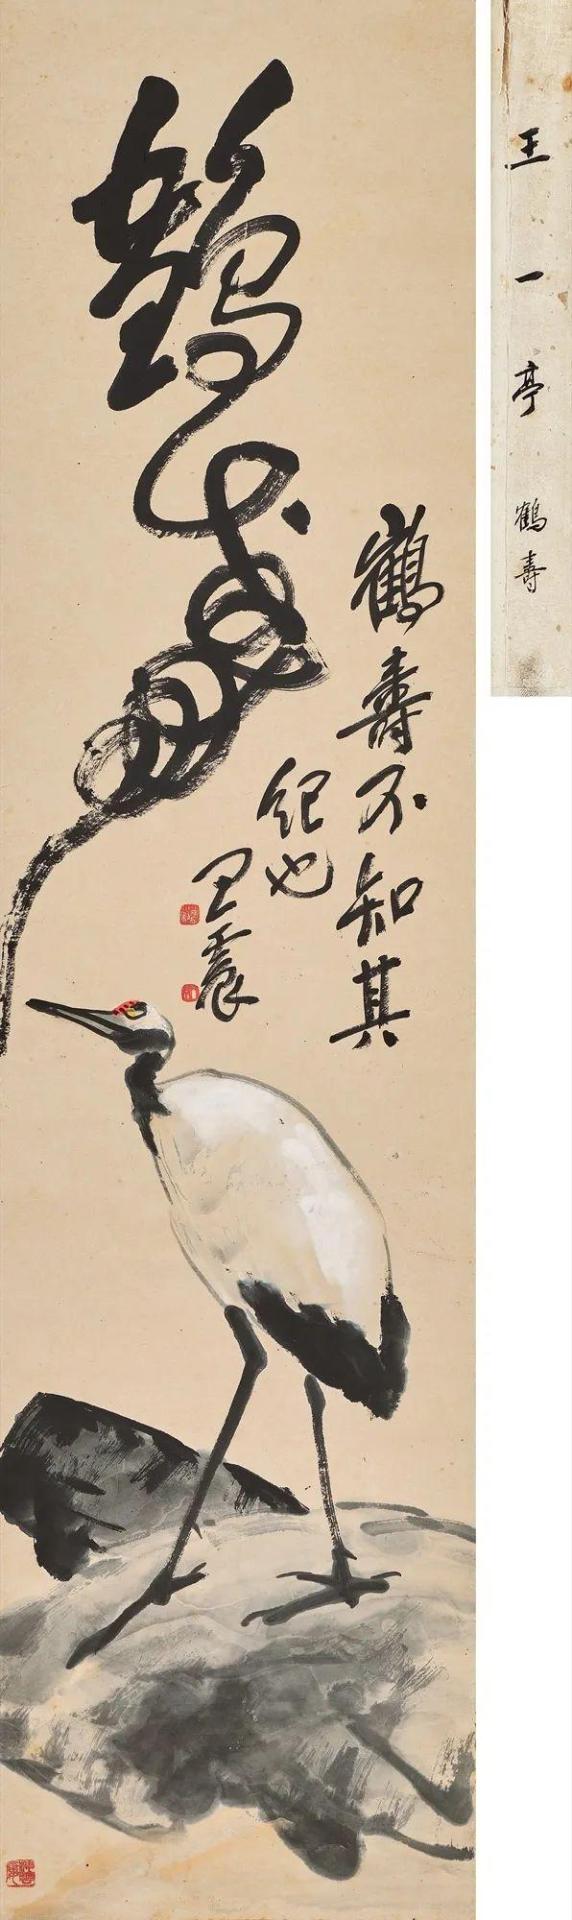 鶴壽
鶴壽不知其
紀也
王震
王一亭 鶴壽